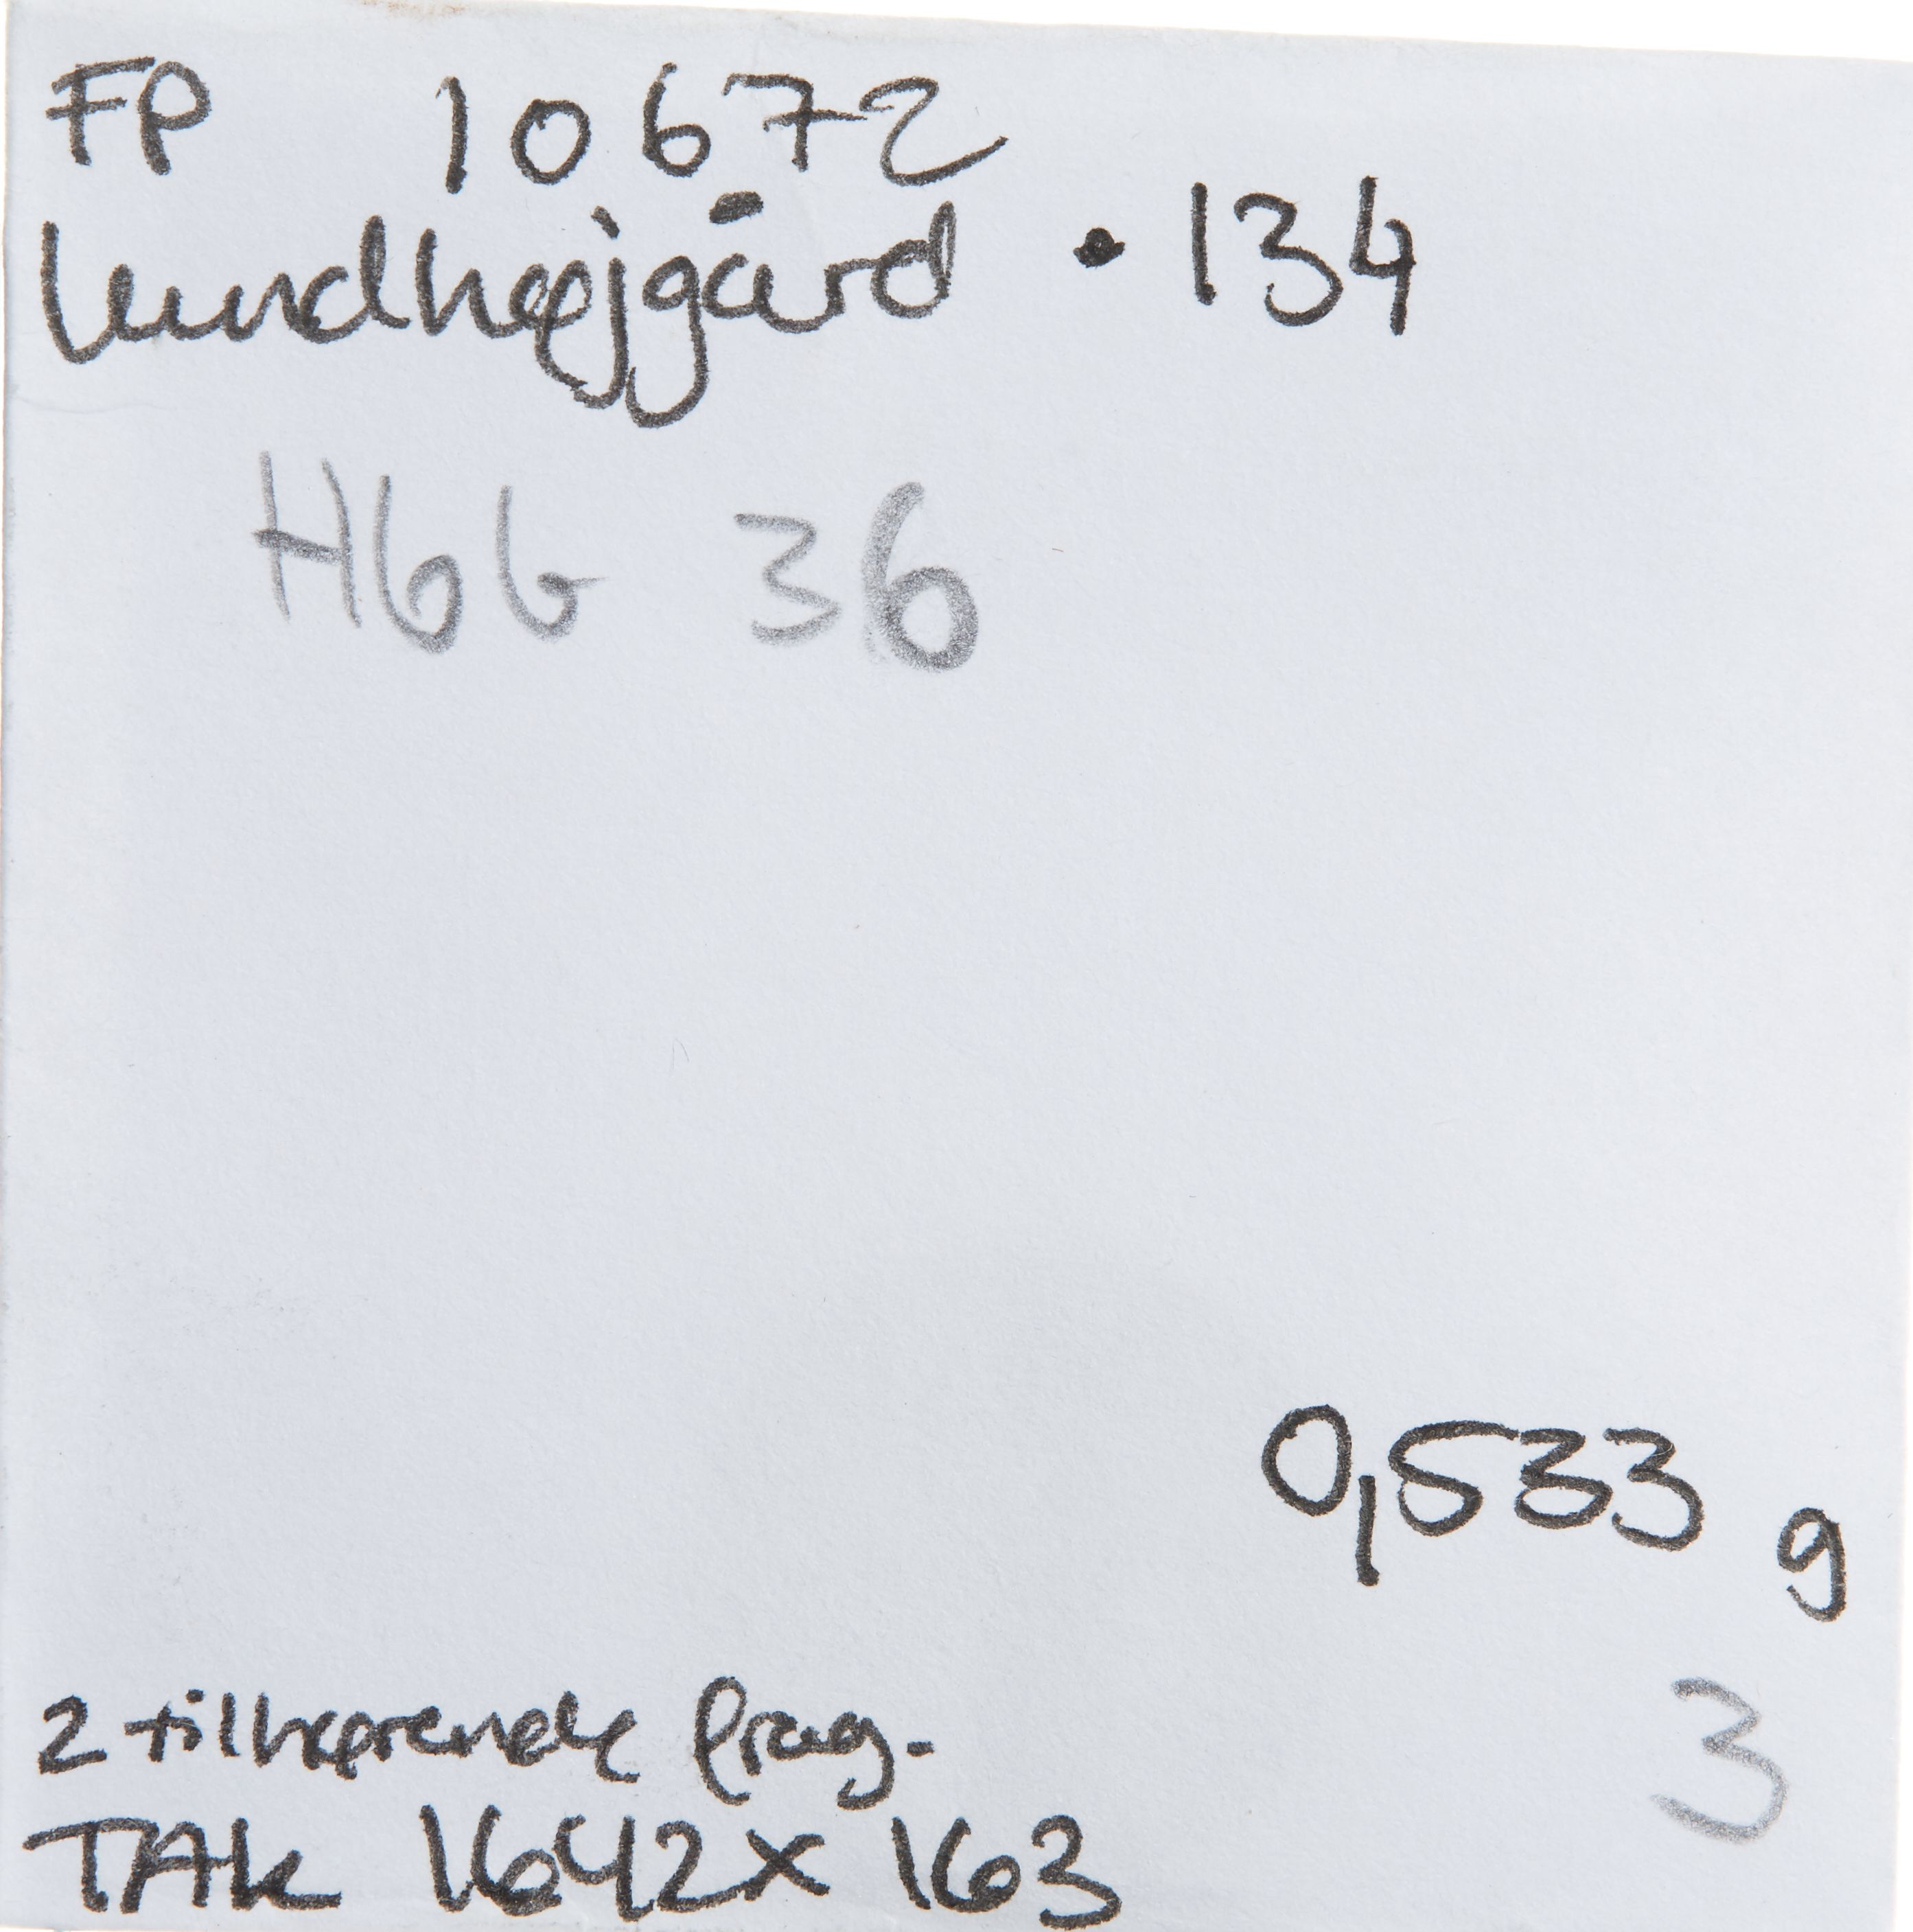 FP 10672
Lundhøjgård • 134
Hbg 36
0,533 g
3
2 tilhørende frag.
TAK 1642 x 163